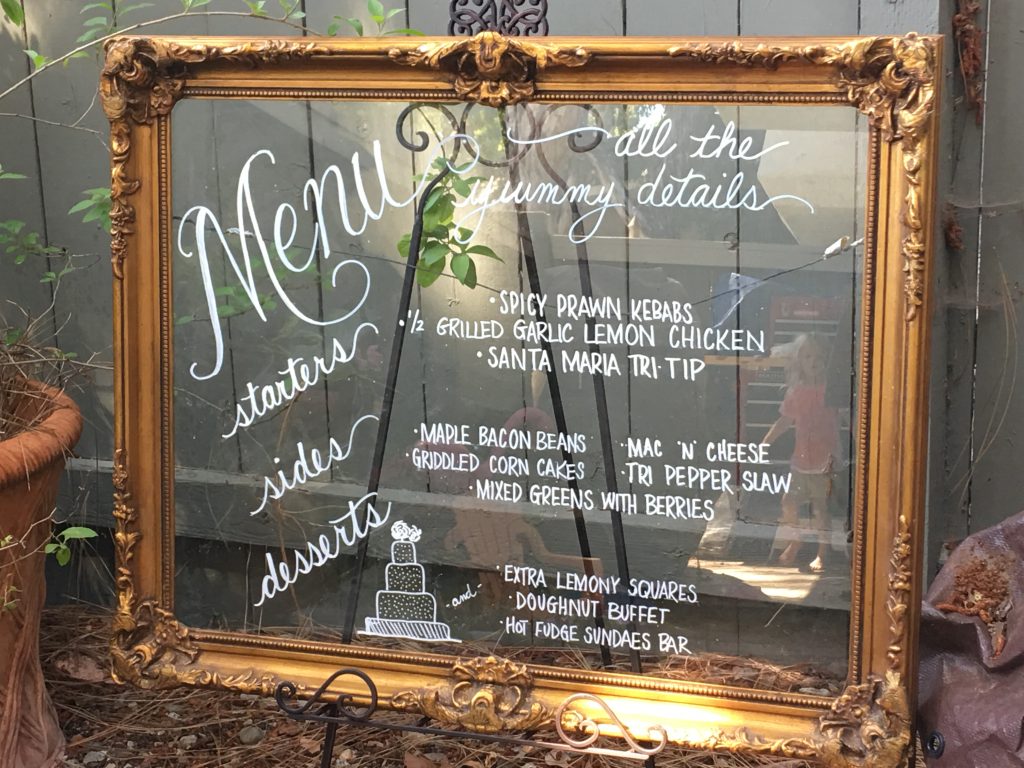 Menu
all the
yummy details
starters
·SPICY PRAWN KEBABS
·1/2 GRILLED GARLIC LEMON CHICKEN
·SANTA MARIA TRI·TIP
sides
·MAPLE BACON BEANS ·MAC 'N' CHEESE
·GRIDDLED CORN CAKES ·TRI PEPPER SLAW
·MIXED GREENS WITH BERRIES
desserts
-and-
·EXTRA LEMONY SQUARES
·DOUGHNUT BUFFET
·HOT FUDGE SUNDAES BAR